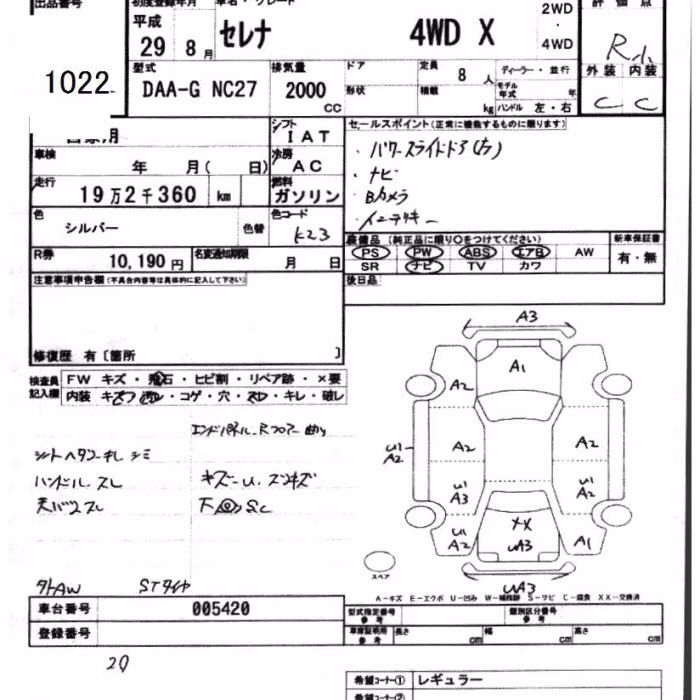 出品番号 初度登録年月 車名・グレード 2WD 評価点
平成 29 8月 セレナ 4WD X ・ 4WD R
1022
型式 排気量 ドア 定員 8人 ディーラー・並行 外装 内装
DAA-G NC27 2000 cc 形状 積載 kg モデル年式 年 C C
ハンドル 左・右
シフト IAT セールスポイント(正常に機能するものに限ります)
車検 年 月( 日) 冷房 AC ・パワースライドドア(右)
走行 19万2千360 km 燃料 ガソリン ・ナビ
・Bカメラ
色 シルバー 色替 色コード K23 ・インテリキー
R券 10,190円 名変通知期限 月 日
装備品(純正品に限り○をつけてください) 新車保証書
PS PW ABS エアB AW 有・無
SR ナビ TV カワ
注意事項申告欄(不具合内容等は具体的に記入して下さい) 後日品
修復歴 有〔箇所 〕
検査員記入欄 FW キズ・飛石・ヒビ割・リペア跡・×要
内装 キズ・汚レ・コゲ・穴・スレ・キレ・破レ
エンドパネル、Rフロアー曲り
シートヘタリ・キレ シミ
ハンドル スレ キズ・U
天バリ スレ 下回 SC
A3
A1
A2
U1 A2 A2 A2
U1 A3 U1 A2
U1 A2 XX UA3 A1
スペア
UA3
A-キズ E-エクボ U-凹み W-補修跡 S-サビ C-腐食 XX-交換済
タイAW STタイヤ
車台番号 005420 型式指定番号 参考 類別区分番号 参考
登録番号 車庫証明用 参考 長さ cm 幅 cm 高さ cm
29
希望コーナー① レギュラー
希望コーナー②